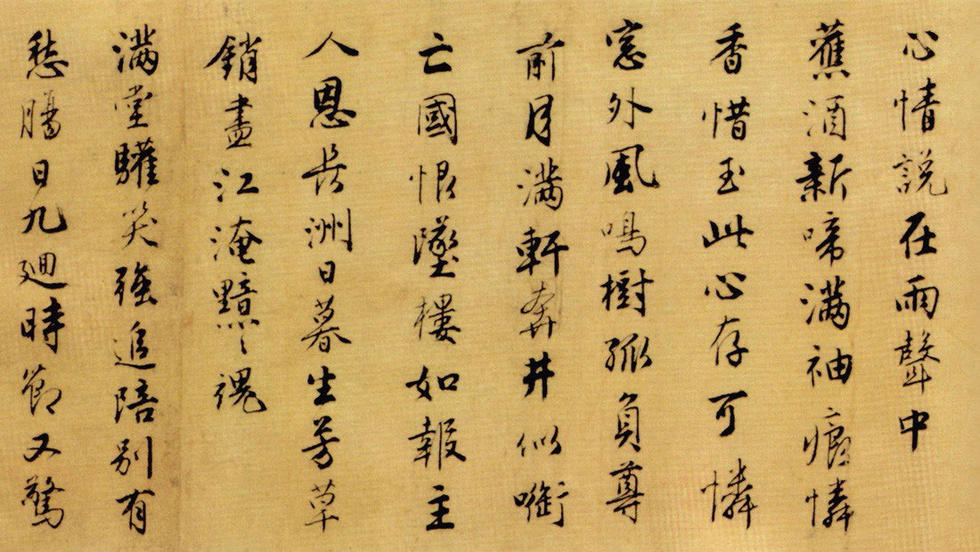 心情說在雨聲中
蕉酒新啼滿袖痕憐
香惜玉此心存可憐
窓外風鳴樹孤負尊
前月滿軒奔井似銜
亡國恨墜樓如報主
人恩長洲日暮生芳草
銷盡江淹黯〻魂
滿堂驩笑強追陪別有
愁腸日九廻時節又驚